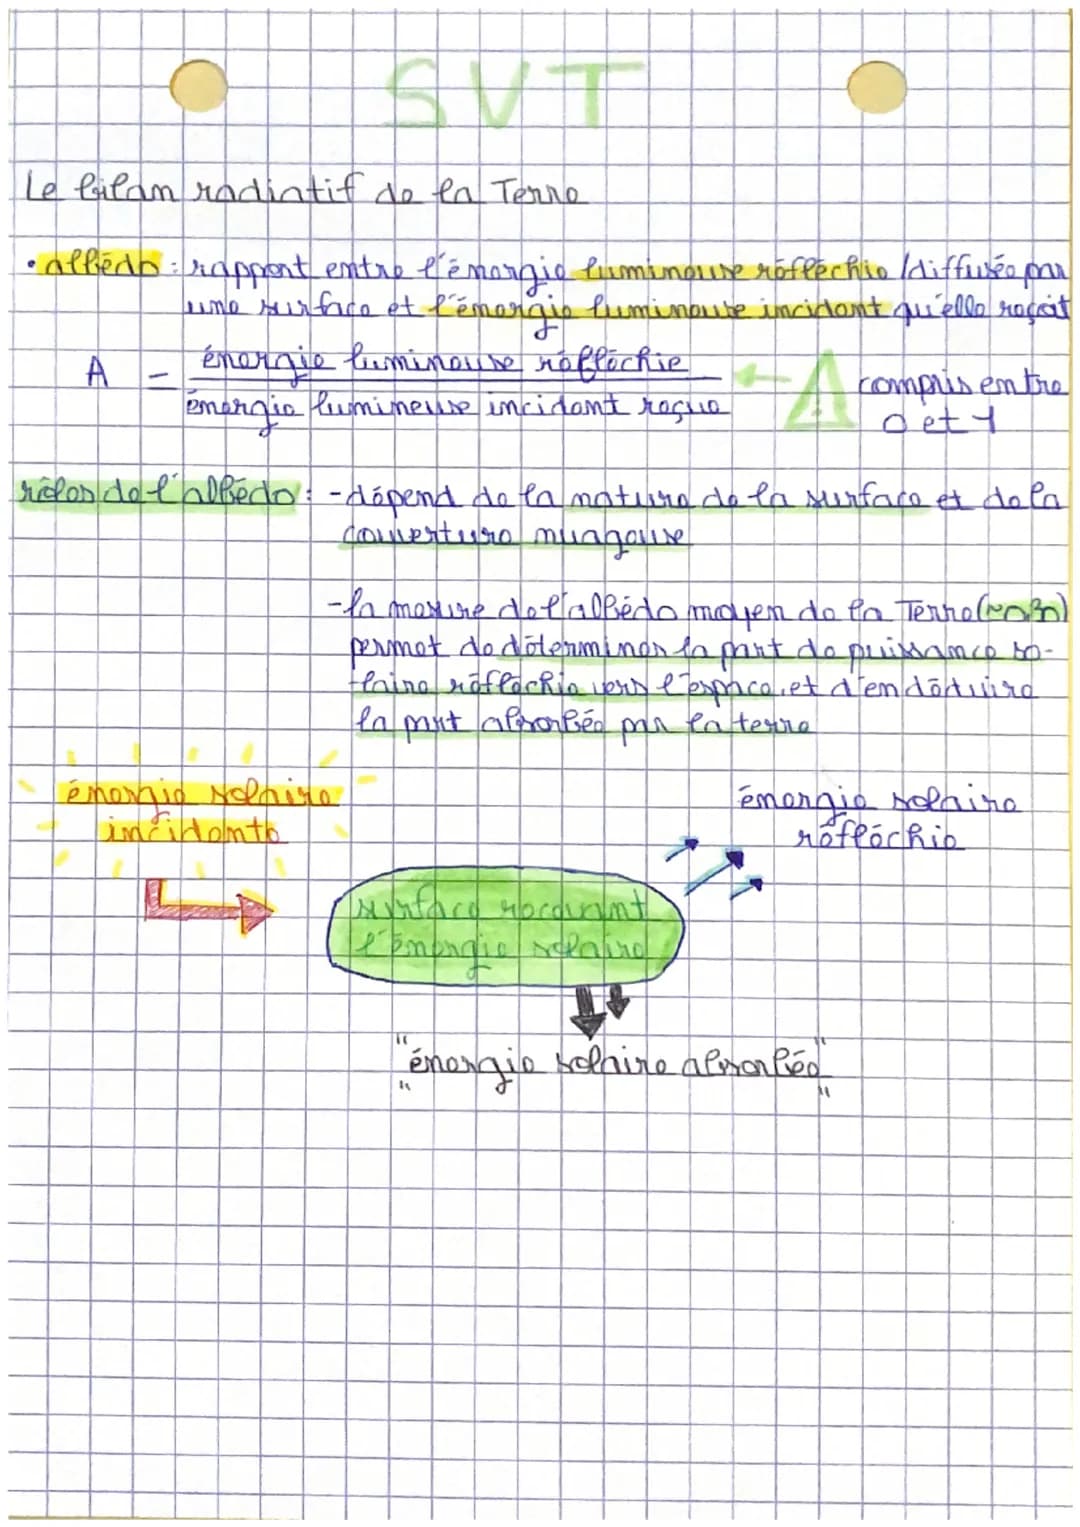 SVT
Le bilan radiatif de la Terre
• albédo : rapport entre l'énergie lumineuse réfléchie / diffusée par
une surface et l'énergie lumineuse incidant qu'elle reçoit
A = énergie lumineuse réfléchie
énergie lumineuse incidant reçue
compris entre
0 et 1
rôles de l'albédo : - dépend de la nature de la surface et de la
couverture nuageuse
- la mesure de l'albédo moyen de la Terre (~0,30)
permet de déterminer la part de puissance so-
laire réfléchie vers l'espace, et d'en déduire
la part absorbée par la terre
énergie solaire
incidente
énergie solaire
réfléchie
surface recevant
l'énergie solaire
"énergie solaire absorbée"